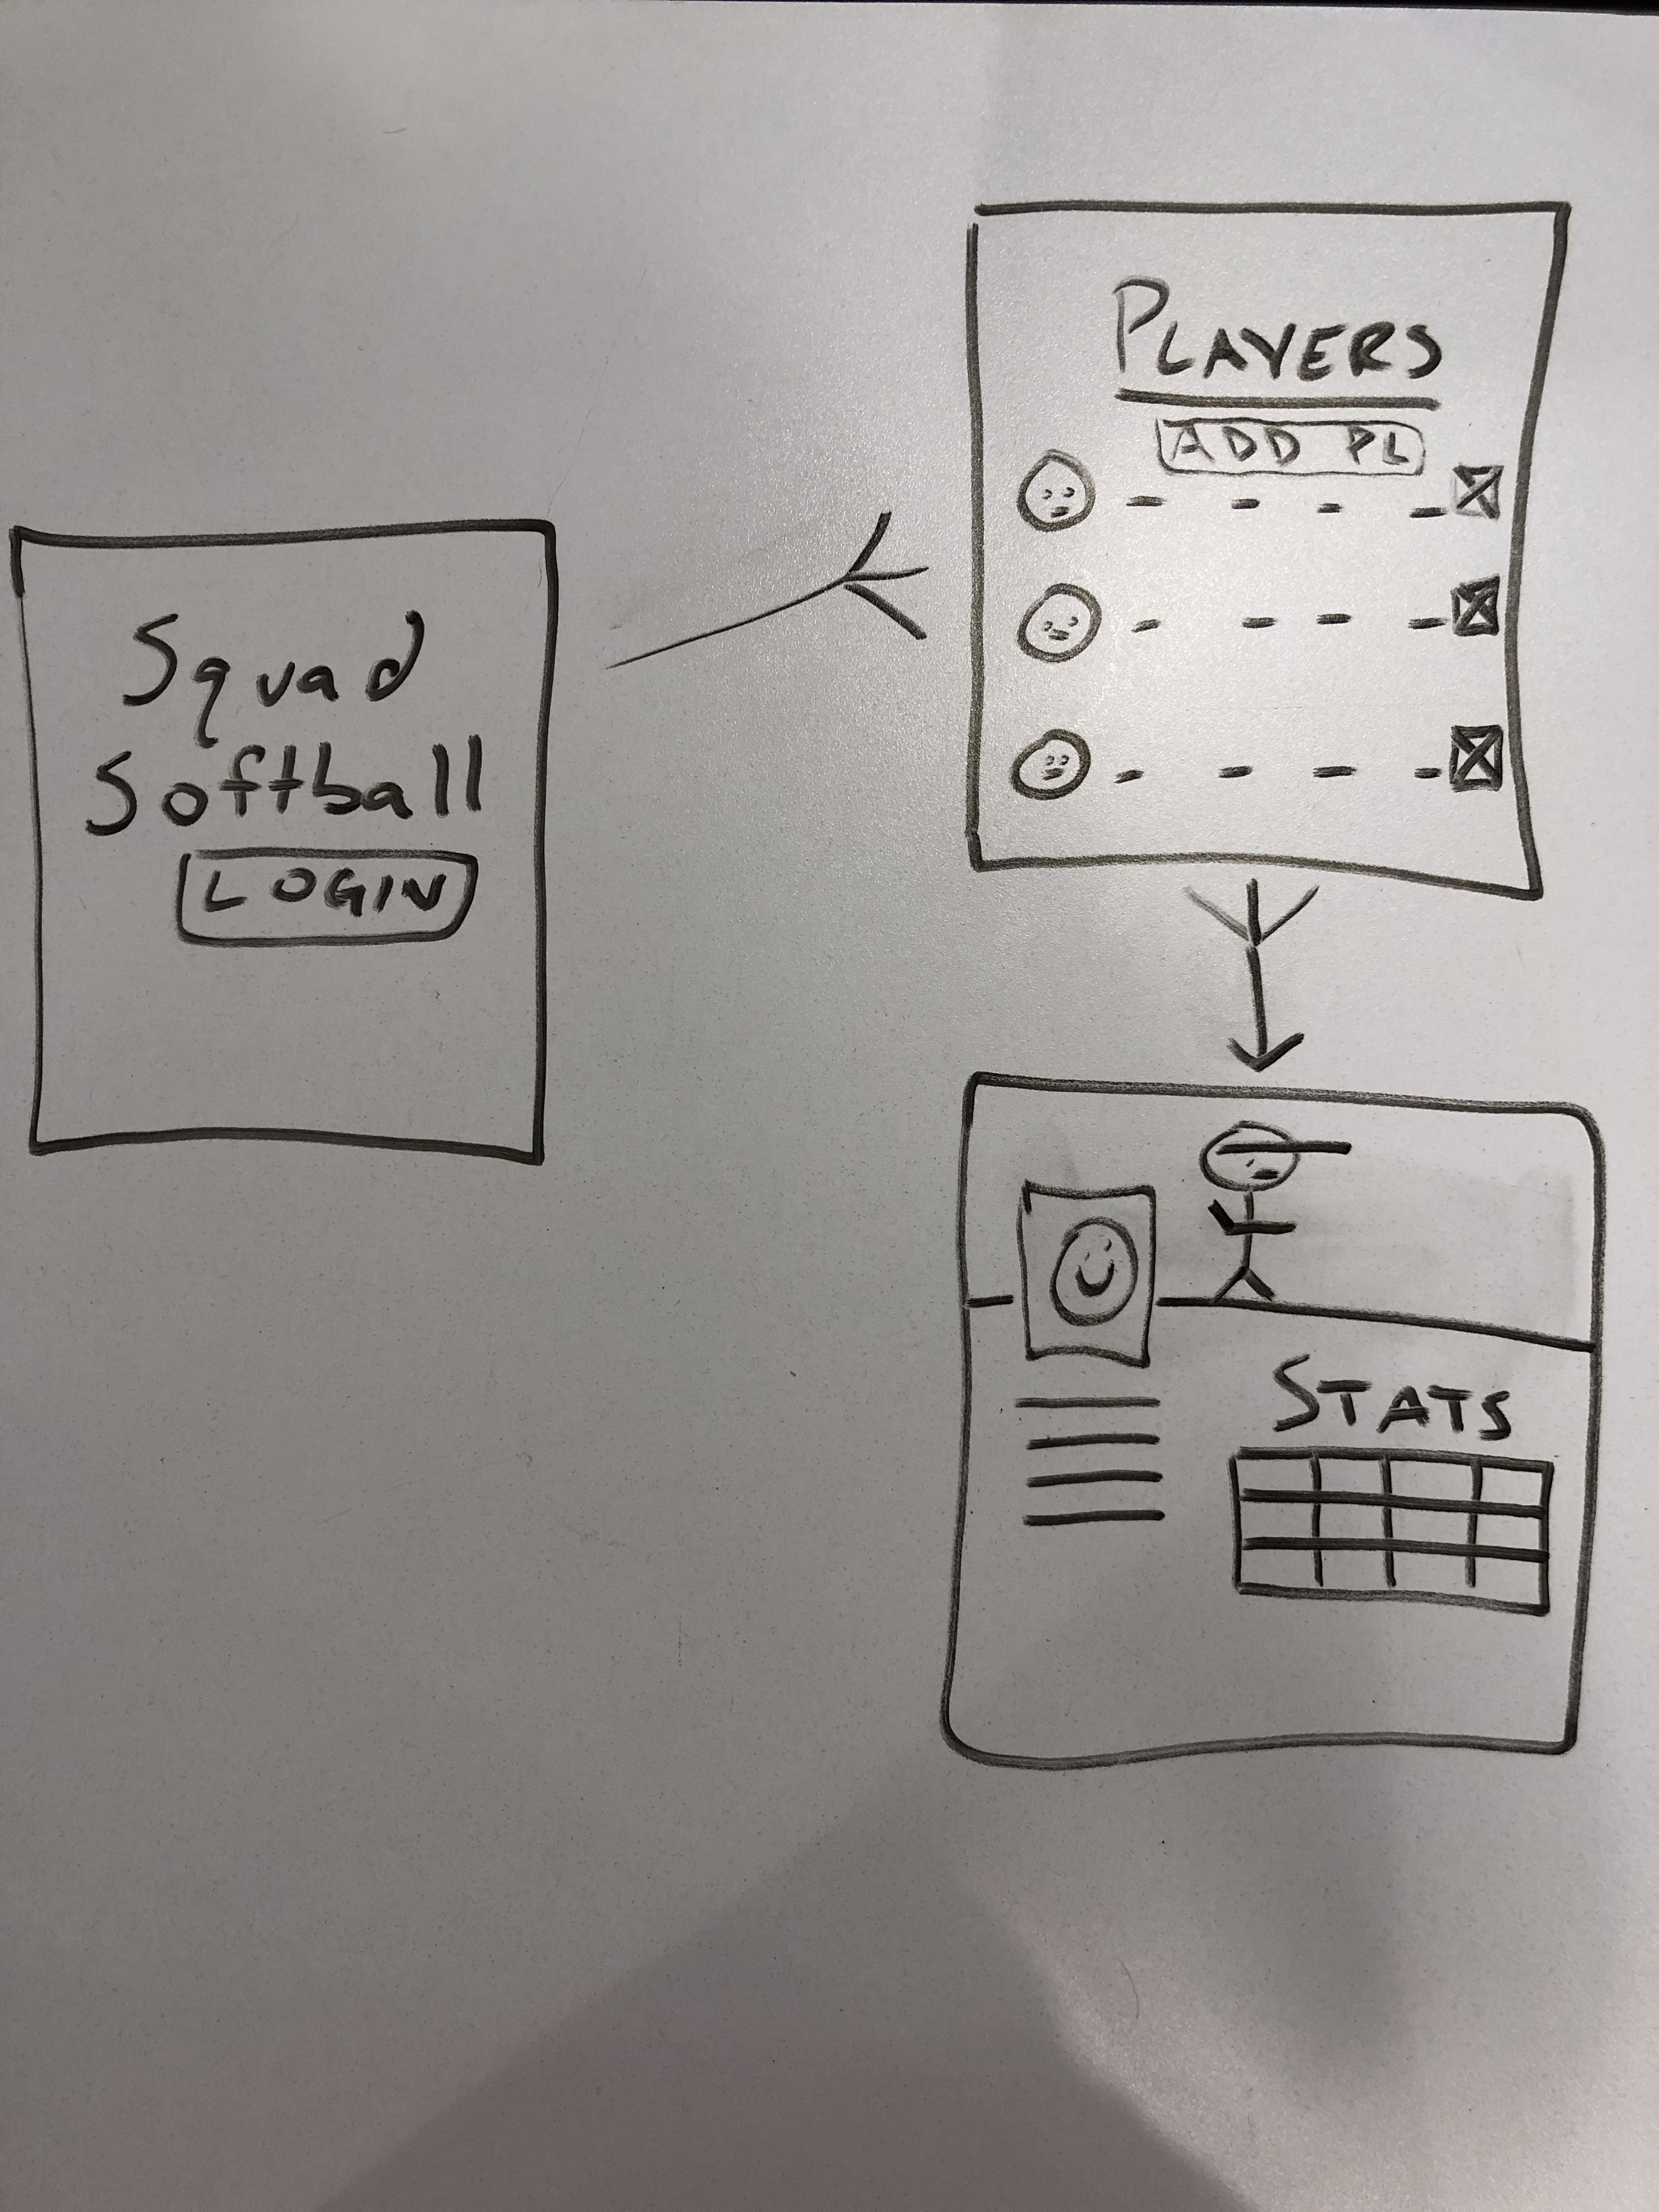 Squad
Softball
LOGIN
PLAYERS
ADD PL
STATS